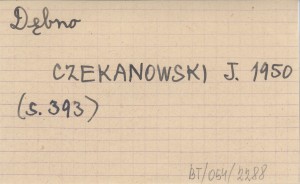 Dębno
CZEKANOWSKI J. 1950
(s. 393)
BT/054/2288